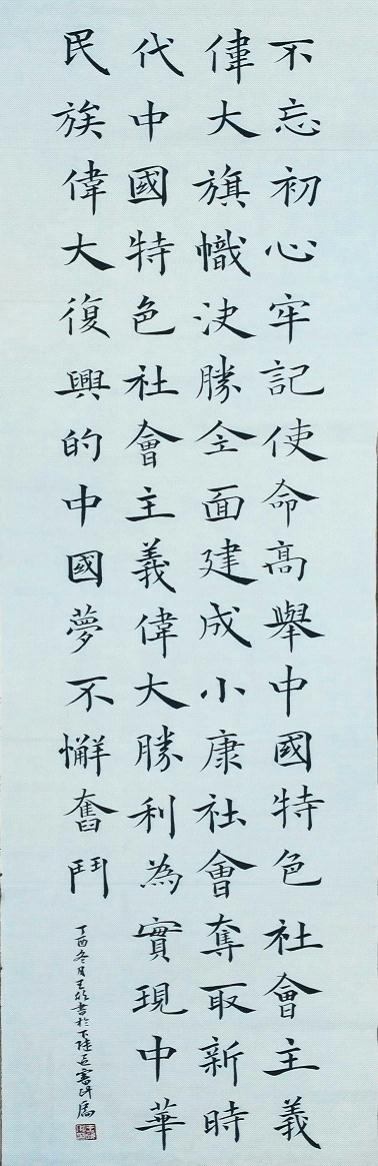 不忘初心牢記使命高舉中國特色社會主義
偉大旗幟決勝全面建成小康社會奪取新時
代中國特色社會主義偉大勝利為實現中華
民族偉大復興的中國夢不懈奮鬥
丁酉冬月王書於下陸區審計局